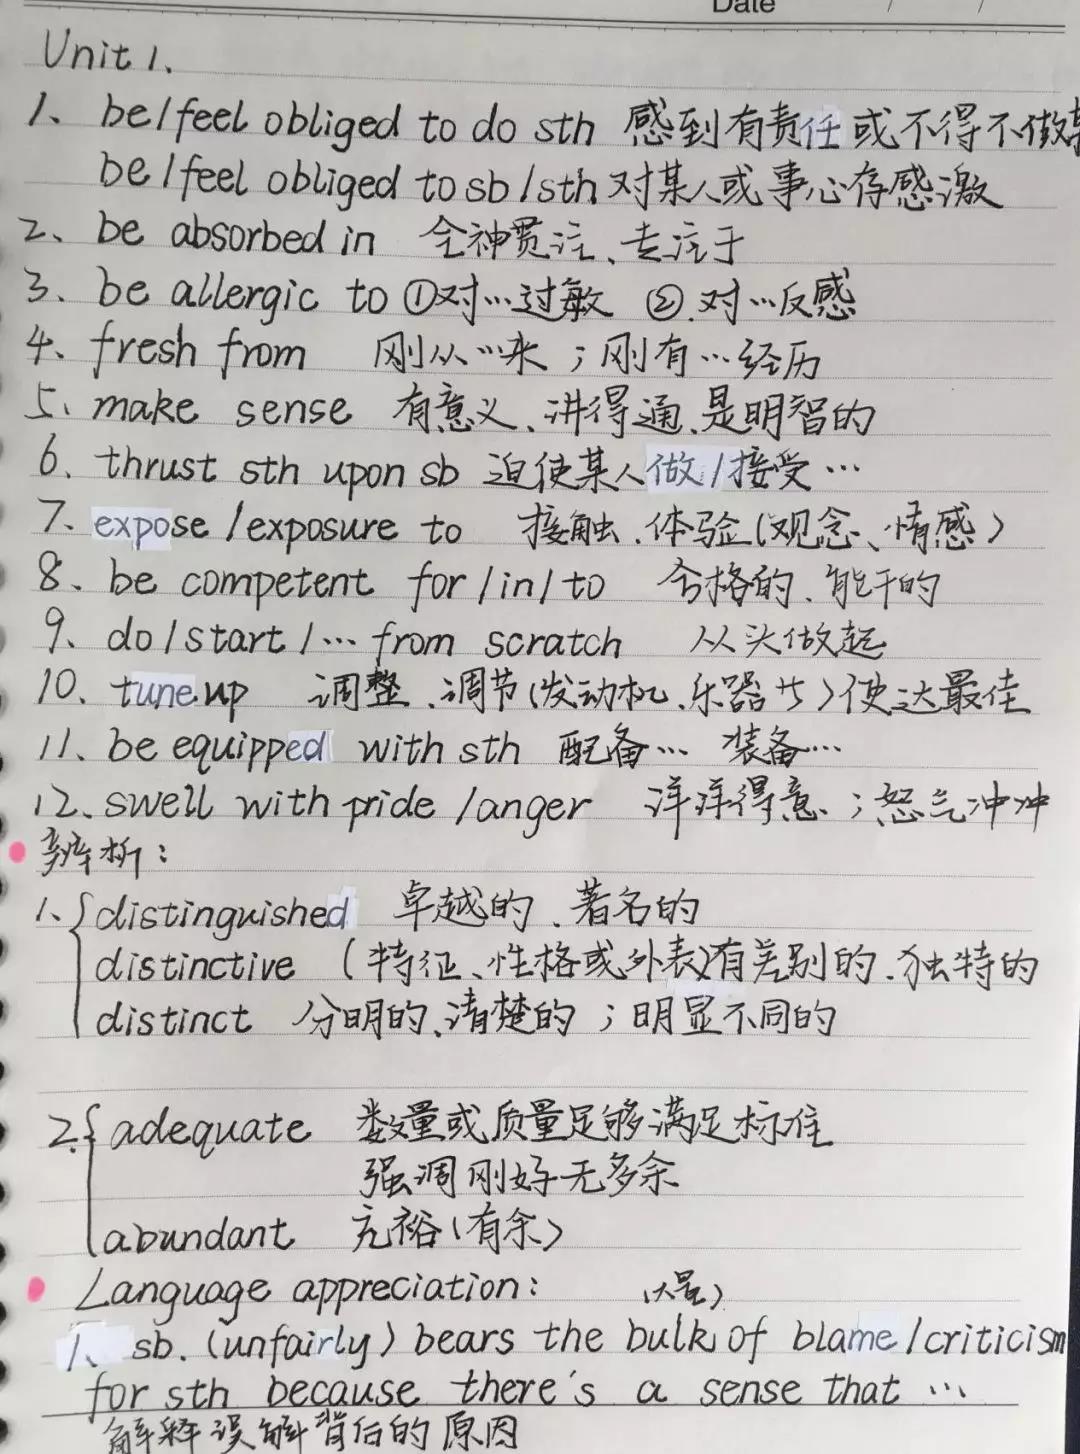 Date / /
Unit 1.
1、be/feel obliged to do sth 感到有责任或不得不做某
be/feel obliged to sb/sth 对某人或事心存感激
2、be absorbed in 全神贯注、专注于
3、be allergic to ①对…过敏 ②.对…反感
4、fresh from 刚从…来；刚有…经历
5、make sense 有意义、讲得通、是明智的
6、thrust sth upon sb 迫使某人做/接受…
7、expose/exposure to 接触、体验(观念、情感)
8、be competent for/in/to 合格的、能干的
9、do/start/… from scratch 从头做起
10、tune up 调整、调节(发动机、乐器等)使达最佳
11、be equipped with sth 配备… 装备…
12、swell with pride/anger 洋洋得意；怒气冲冲
辨析：
1、{distinguished 卓越的、著名的
distinctive (特征、性格或外表)有差别的、独特的
distinct 分明的、清楚的；明显不同的
2.{adequate 数量或质量足够满足标准
强调刚好无多余
abundant 充裕(有余)
Language appreciation:
(大量)
1、sb. (unfairly) bears the bulk of blame/criticism
for sth because there's a sense that …
解释误解背后的原因